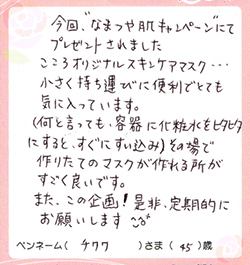 今回、"なまつや肌キャンペーン"にて
プレゼントされました
こころオリジナルスキンケアマスク・・・
小さく持ち運びに便利でとても
気に入っています。
(何と言っても、容器に化粧水をヒタヒタ
にすると、すぐにすい込み)その場で
作りたてのマスクが作れる所が
すごく良いです。
また、この企画!是非、定期的に
お願いします
ペンネーム( チワワ )さま( 45 )歳